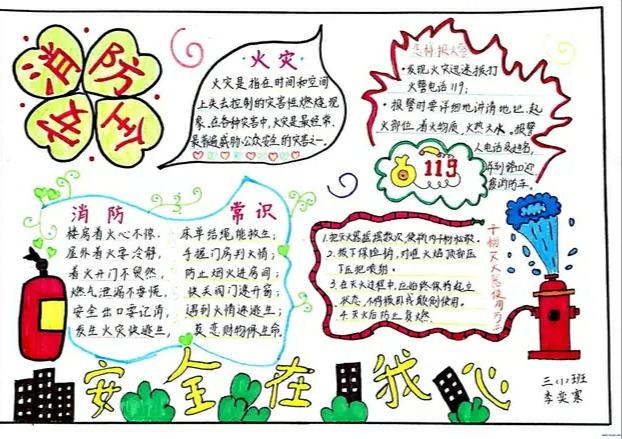 消防
安全
火灾
火灾是指在时间和空间
上失去控制的灾害性燃烧现
象,在各种灾害中,火灾是最经常、
最普遍威胁公众安全的灾害之一。
怎样报火警
·发现火灾迅速拨打
火警电话119;
·报警时要详细地讲清地址、起
火部位、着火物质、火势大小、报警
人电话及姓名,
119
消防 常识
楼房着火心不惊,
屋外着火要冷静,
着火开门不贸然,
燃气泄漏不要慌,
安全出口要记清,
发生火灾快逃生,
床单结绳能救生;
手摸门房判火情;
防止烟火进房间;
快关阀门速开窗;
遇到火情速逃生;
莫恋财物保生命
干粉灭火器使用方法
1.把灭火器摇摇数次,使瓶内干粉松散。
2.拔下保险销,对准火焰根部压
下压把喷射。
3.在灭火过程中,应始终保持直立
状态,不得横卧或颠倒使用。
4.灭火后防止复燃。
安全在我心
三(1)班